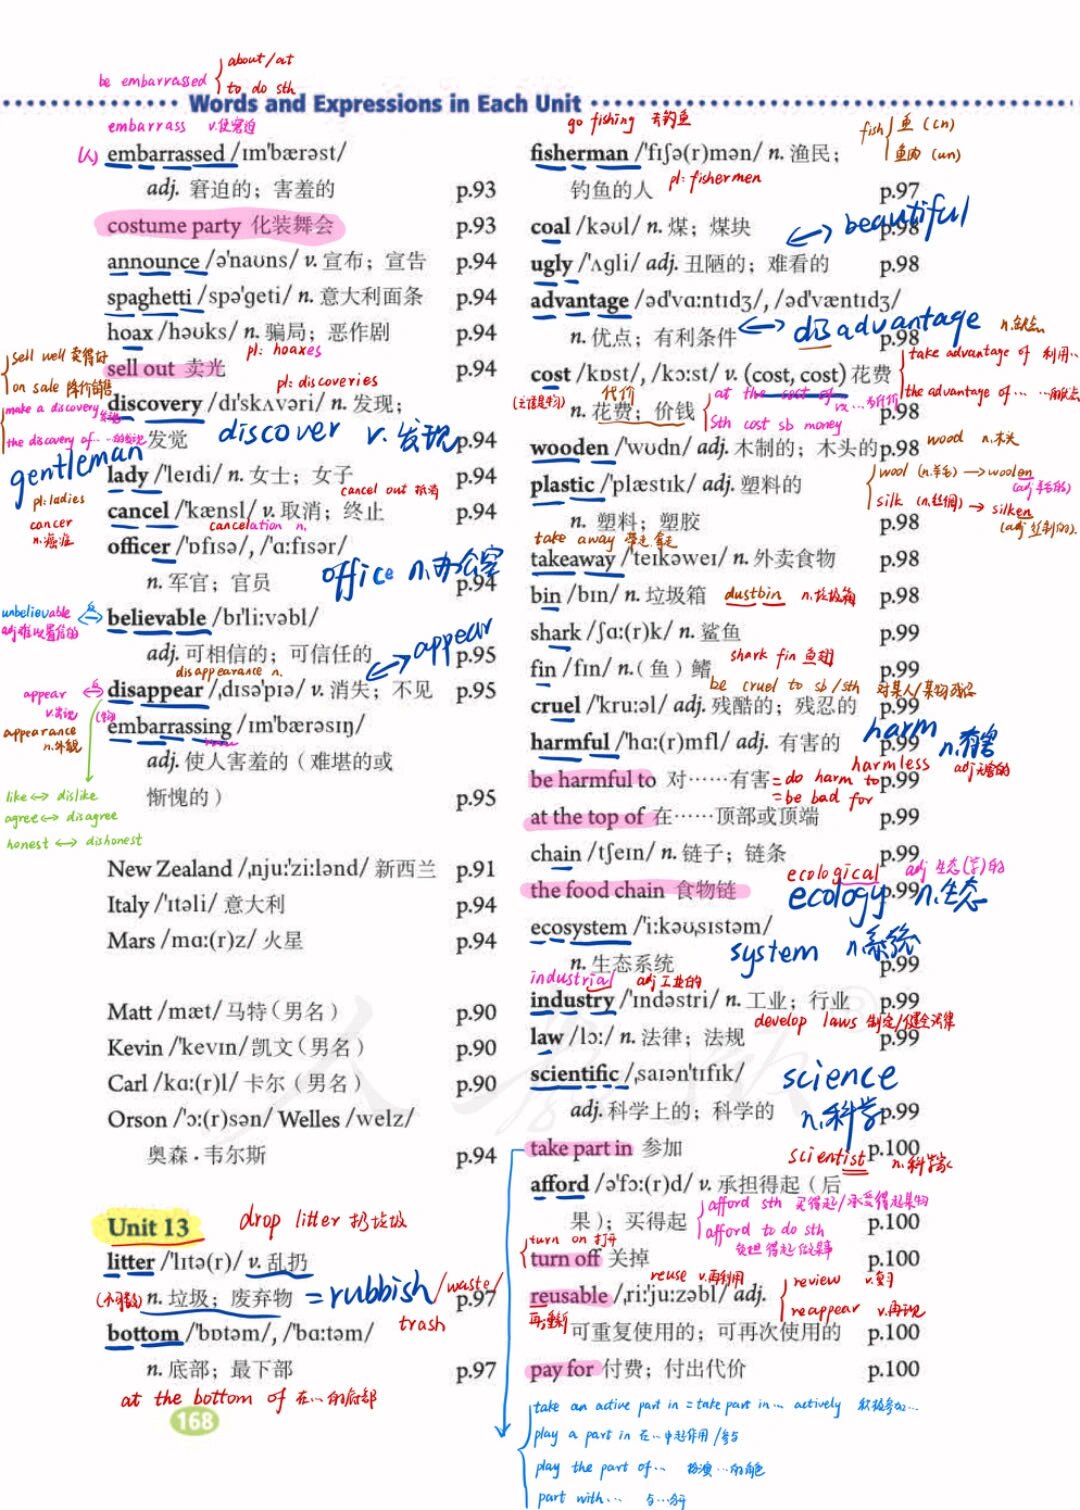 be embarrassed about/at
to do sth
Words and Expressions in Each Unit
embarrass v.使窘迫
(人) embarrassed /ɪm'bærəst/
adj. 窘迫的；害羞的 p.93
costume party 化装舞会 p.93
announce /ə'naʊns/ v. 宣布；宣告 p.94
spaghetti /spə'ɡeti/ n. 意大利面条 p.94
hoax /həʊks/ n. 骗局；恶作剧 p.94
pl: hoaxes
sell well 卖得好
on sale 降价销售
sell out 卖光 p.94
pl: discoveries
make a discovery 发现
the discovery of ……的发现
discovery /dɪ'skʌvəri/ n. 发现；
发觉 p.94
discover v. 发现
gentleman
lady /'leɪdi/ n. 女士；女子 p.94
pl: ladies
cancel out 抵消
cancel /'kænsl/ v. 取消；终止 p.94
cancer
n.癌症
cancelation n.
officer /'ɒfɪsə/, /'ɑ:fɪsər/
n. 军官；官员 p.94
office n.办公室
unbelievable
adj难以置信的
believable /bɪ'li:vəbl/
adj. 可相信的；可信任的 p.95
appear
disappearance n.
disappear /ˌdɪsə'pɪə/ v. 消失；不见 p.95
appear
v.出现
appearance
n.外貌
embarrassing /ɪm'bærəsɪŋ/
adj. 使人害羞的（难堪的或
惭愧的） p.95
like ↔ dislike
agree ↔ disagree
honest ↔ dishonest
New Zealand /ˌnju:'zi:lənd/ 新西兰 p.91
Italy /'ɪtəli/ 意大利 p.94
Mars /mɑ:(r)z/ 火星 p.94
Matt /mæt/ 马特（男名） p.90
Kevin /'kevɪn/ 凯文（男名） p.90
Carl /kɑ:(r)l/ 卡尔（男名） p.90
Orson /'ɔ:(r)sən/ Welles /welz/
奥森·韦尔斯 p.94
Unit 13
drop litter 扔垃圾
litter /'lɪtə(r)/ v. 乱扔
(不可数) n. 垃圾；废弃物 p.97
= rubbish / waste /
trash
bottom /'bɒtəm/, /'bɑ:təm/
n. 底部；最下部 p.97
at the bottom of 在…的底部
168
go fishing 去钓鱼
fish 鱼 (cn)
鱼肉 (un)
fisherman /'fɪʃə(r)mən/ n. 渔民；
钓鱼的人 p.97
pl: fishermen
coal /kəʊl/ n. 煤；煤块 p.98
beautiful
ugly /'ʌɡli/ adj. 丑陋的；难看的 p.98
advantage /əd'vɑ:ntɪdʒ/, /əd'væntɪdʒ/
n. 优点；有利条件 p.98
disadvantage n.缺点
take advantage of 利用…
the advantage of … …的优点
cost /kɒst/, /kɔ:st/ v. (cost, cost) 花费
(主语是物) 代价
n. 花费；价钱 p.98
at the cost of
sth cost sb money
wooden /'wʊdn/ adj. 木制的；木头的 p.98
wood n.木头
plastic /'plæstɪk/ adj. 塑料的
n. 塑料；塑胶 p.98
wool (n.羊毛) → woolen
(adj羊毛的)
silk (n.丝绸) → silken
(adj丝制的).
take away 带走,拿走
takeaway /'teɪkəweɪ/ n. 外卖食物 p.98
bin /bɪn/ n. 垃圾箱 p.98
dustbin n.垃圾箱
shark /ʃɑ:(r)k/ n. 鲨鱼 p.99
shark fin 鱼翅
fin /fɪn/ n.（鱼）鳍 p.99
be cruel to sb/sth 对某人/某物残忍
cruel /'kru:əl/ adj. 残酷的；残忍的 p.99
harmful /'hɑ:(r)mfl/ adj. 有害的 p.99
harm n.有害
harmless adj无害的
be harmful to 对……有害 p.99
= do harm to
= be bad for
at the top of 在……顶部或顶端 p.99
chain /tʃeɪn/ n. 链子；链条 p.99
ecological adj 生态(学)的
the food chain 食物链 p.99
ecology n.生态
ecosystem /'i:kəʊˌsɪstəm/
n. 生态系统 p.99
system n系统
industrial adj工业的
industry /'ɪndəstri/ n. 工业；行业 p.99
develop laws 制定/健全法律
law /lɔ:/ n. 法律；法规 p.99
scientific /ˌsaɪən'tɪfɪk/
adj. 科学上的；科学的 p.99
science
n.科学
take part in 参加 p.100
scientist n.科学家
afford /ə'fɔ:(r)d/ v. 承担得起（后
果）；买得起 p.100
afford sth 买得起/承受得起某物
afford to do sth
负担得起做某事
turn on 打开
turn off 关掉 p.100
reuse v.再利用
reusable /ˌri:'ju:zəbl/ adj.
可重复使用的；可再次使用的 p.100
再;重新
review v.复习
reappear v.再现
pay for 付费；付出代价 p.100
take an active part in = take part in… actively 积极参加…
play a part in 在…中起作用/参与
play the part of… 扮演…的角色
part with… 与…分开